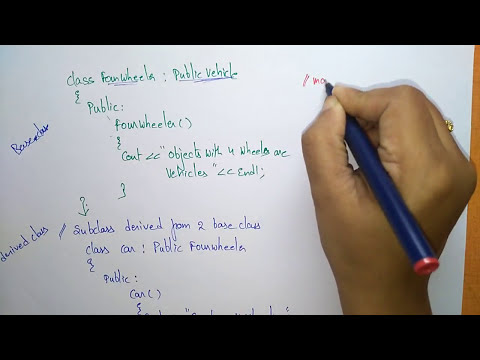 class Fourwheeler : Public Vehicle
{
Public:
Fourwheeler()
{
Cout <<"Objects with 4 wheelers are
Vehicles "<< Endl;
}
};
Base class
derived class
// Subclass derived from 2 base class
class car : Public Fourwheeler
{
Public:
Car()
{
// ma